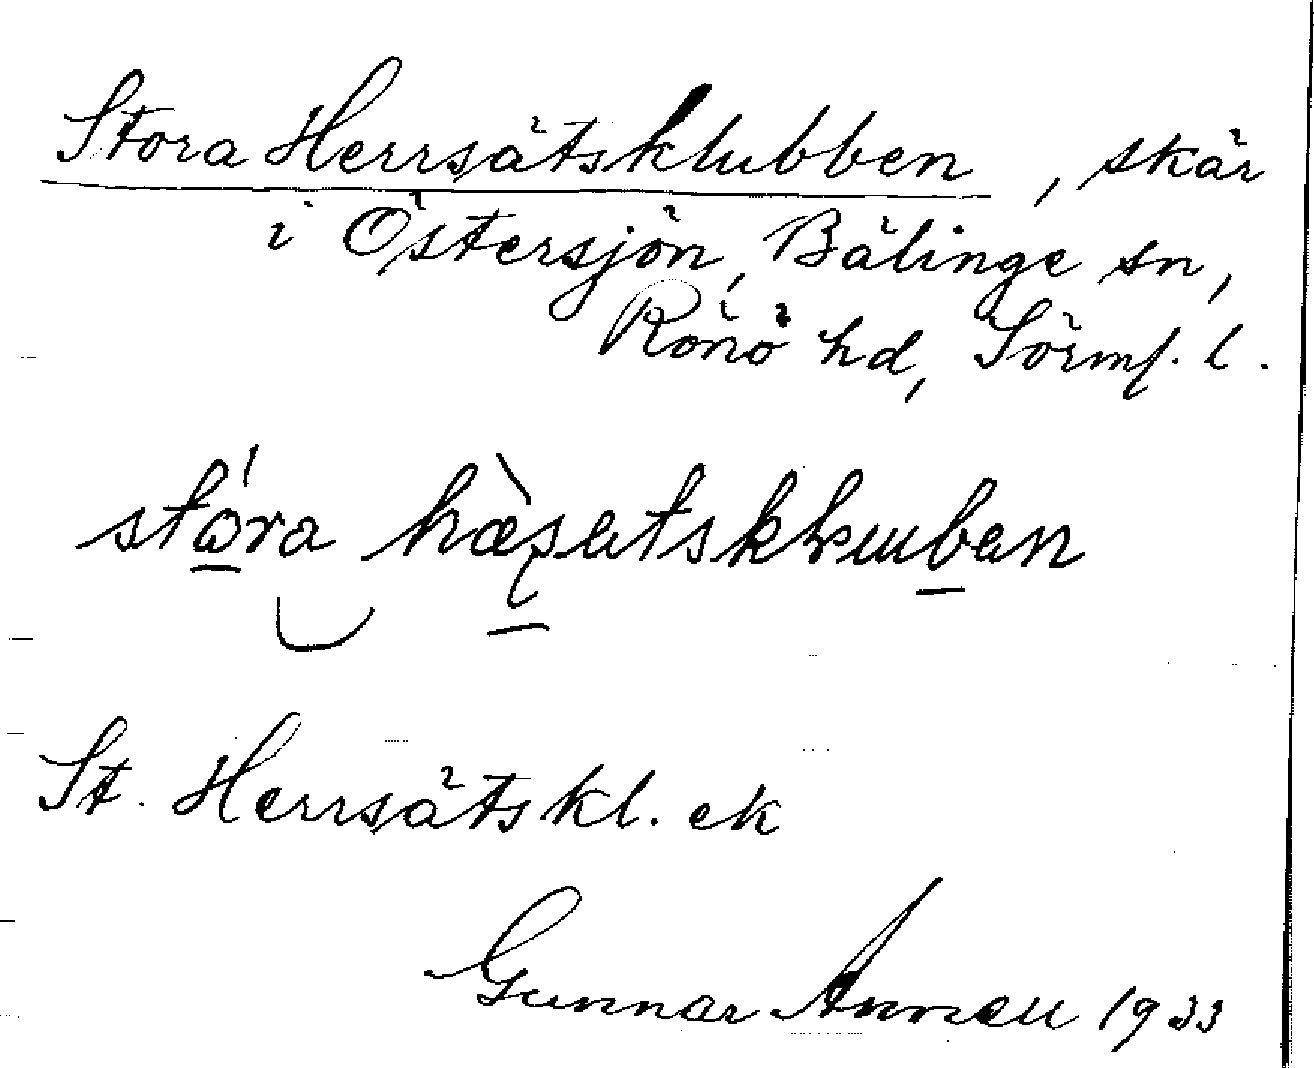 Stora Herrsätsklubben, skär
i Östersjön, Bälinge sn,
Rönö hd, Sörml. l.
stora
St. Herrsätskl. ek
Gunnar Annell 1933